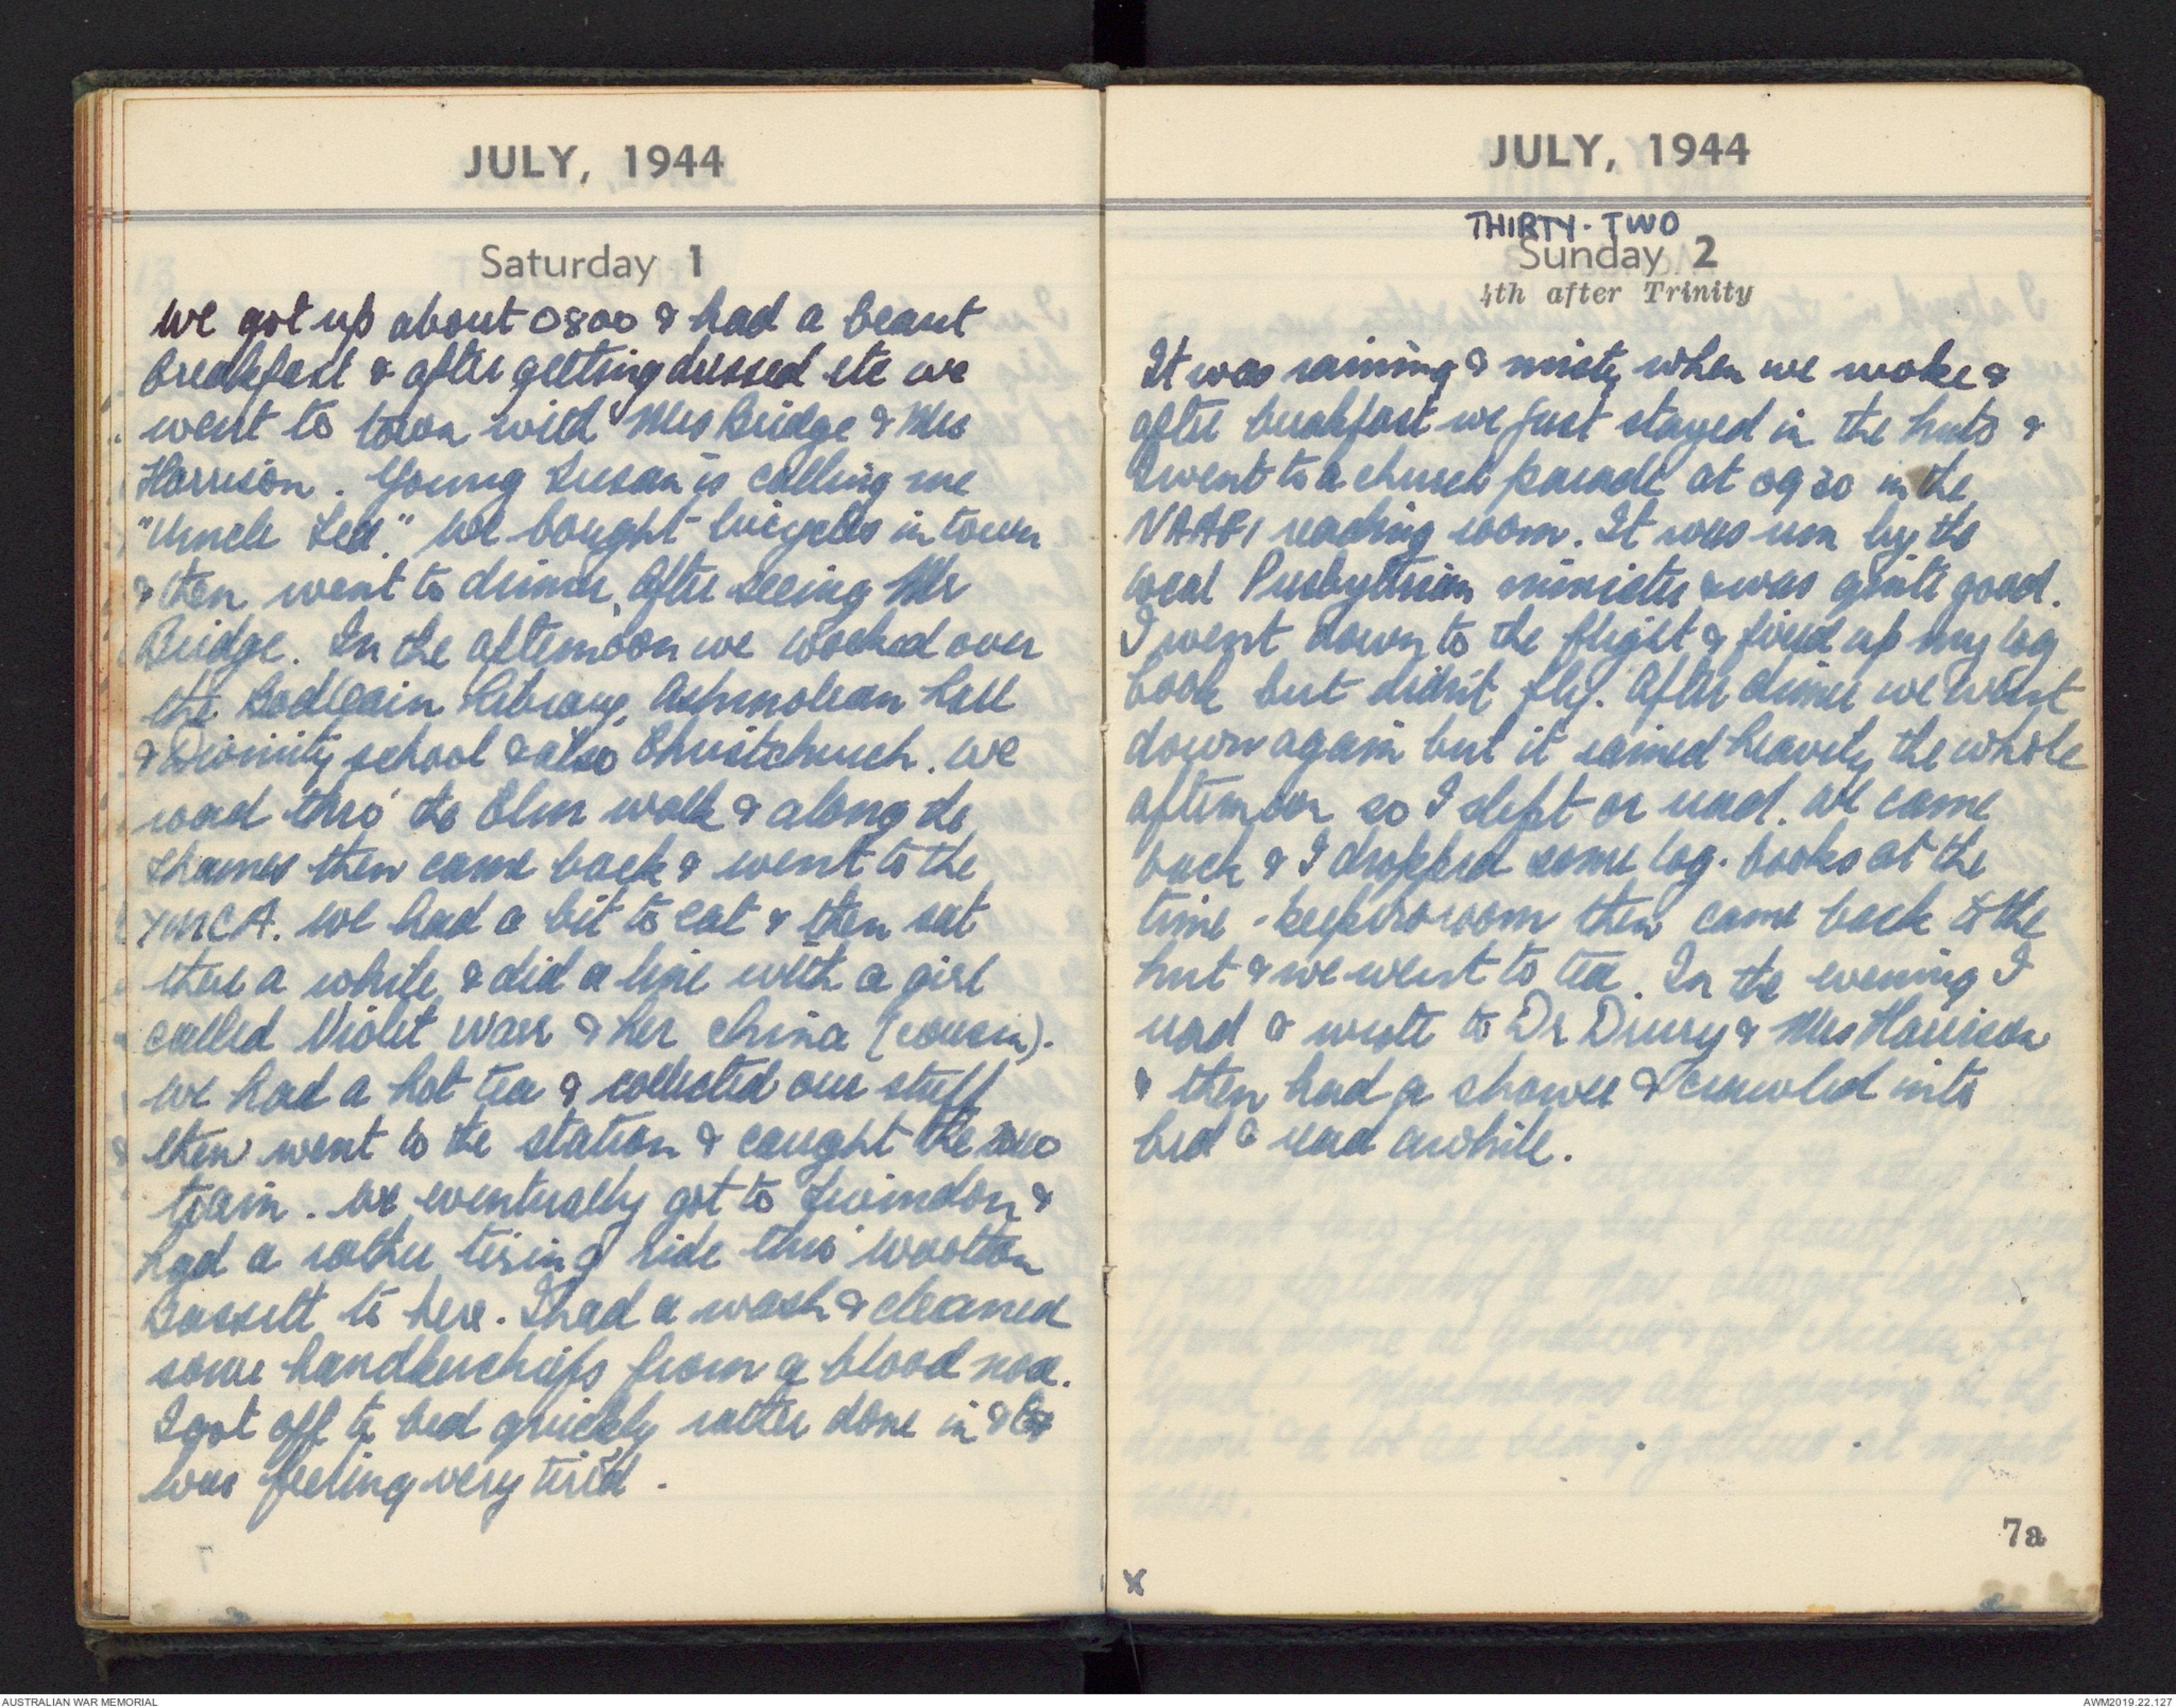 JULY, 1944
Saturday 1
We got up about 0800 & had a beaut
breakfast & after getting dressed etc we
went to town with Mrs Bridge & Mrs
Harrison. Young Susan is calling me
"Uncle Led." We bought bicycles in town
& then went to dinner, after seeing Mr
Bridge. In the afternoon we looked over
the Bodleain Library, Ashmolean Hall
& Divinity school & also Christchurch. We
went thro' the Elm walk & along the
Thames then came back & went to the
YMCA. We had a bit to eat & then sat
there a while & did a line with a girl
called Violet & her china (cousin).
We had a hot tea & collected our stuff
then went to the station & caught the
train. We eventually got to Swindon &
had a rather tiring ride thro' Wootton
Bassett to here. I had a wash & cleaned
some handkerchiefs from a blood nose.
I got off to bed quickly rather done in &
was feeling very tired.
JULY, 1944
THIRTY-TWO
Sunday 2
4th after Trinity
It was raining & misty when we woke &
after breakfast we just stayed in the huts &
I went to a church parade at 0930 in the
NAAFI reading room. It was run by the
local Presbyterian minister & was quite good.
I went down to the flight & fixed up my log
book but didn't fly. After dinner we went
down again but it rained heavily the whole
afternoon so I slept or read. We came
back & I dropped some log-books at the
time-keepers room then came back to the
hut & we went to tea. In the evening I
read & wrote to Dr Drury & Mrs Harrison
& then had a shower & crawled into
bed & read awhile.
7a
x
AUSTRALIAN WAR MEMORIAL
AWM2019.22.127